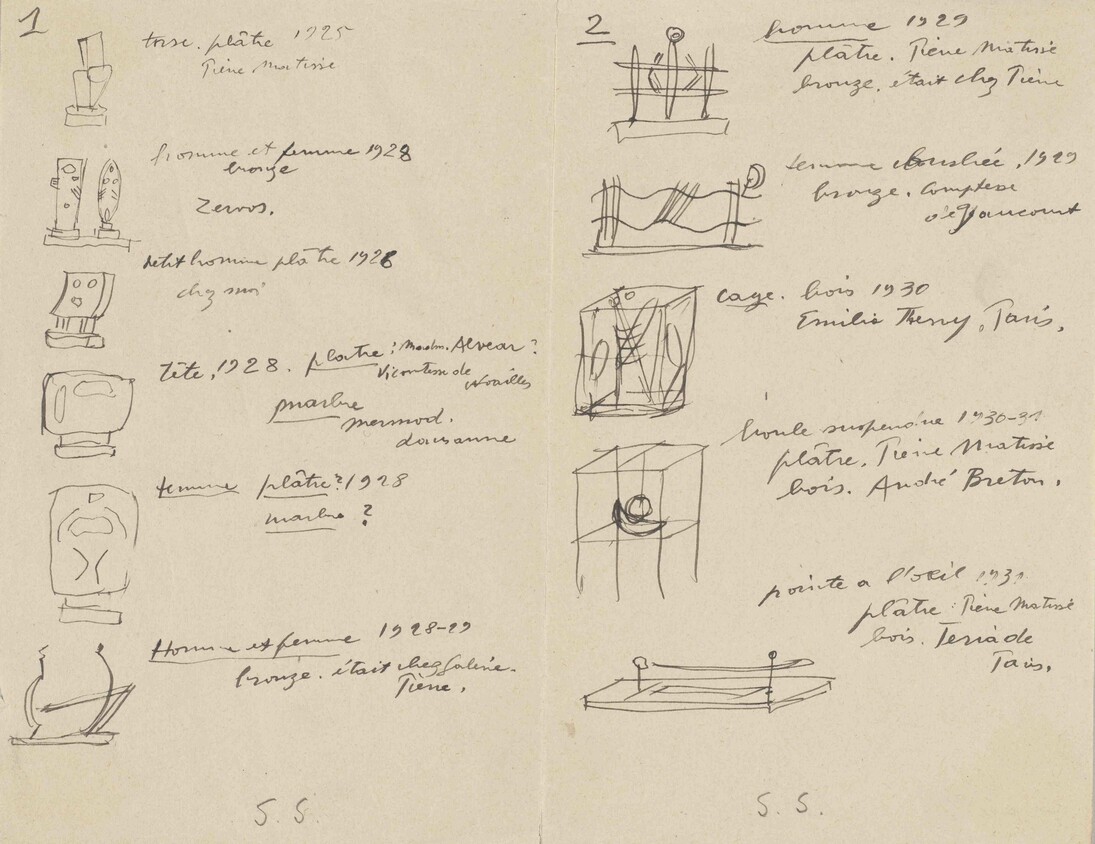 1
torse. plâtre 1925
Pierre Matisse
homme et femme 1928
bronze
Zervos.
petit homme plâtre 1928
chez moi
tête, 1928. plâtre: Madm. Alvear?
Vicomtesse de
Noailles
marbre
mermod.
Lausanne
femme plâtre? 1928
marbre ?
Homme et femme 1928-29
bronze. était chez Galerie.
Pierre.
S. S.
2
homme 1929
plâtre. Pierre Matisse
bronze. était chez Pierre
femme couchée, 1929
bronze. Comptesse
de
cage. bois 1930
Emilio Terry, Paris.
boule suspendue 1930-31
plâtre. Pierre Matisse
bois. André Breton.
pointe a l'oeil 1931
plâtre: Pierre Matisse
bois. Teriade
Paris.
S. S.